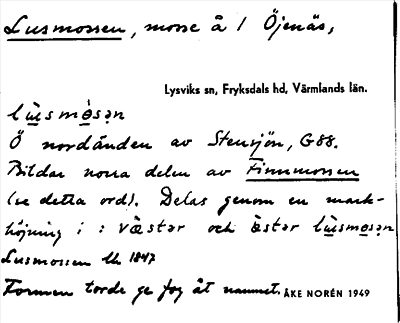 Lusmossen, mosse å 1 Öjenäs,
Lysviks sn, Fryksdals hd, Värmlands län.
lu̇̀smȯ̀sən
Ö nordänden av Stensjön, G88.
Bildar norra delen av Finnmossen
(se detta ord). Delas genom en mark-
höjning i : væstər och östər lùsmosən
Lusmossen Uk 1847
Formen torde ge fog åt namnet.
ÅKE NORÉN 1949